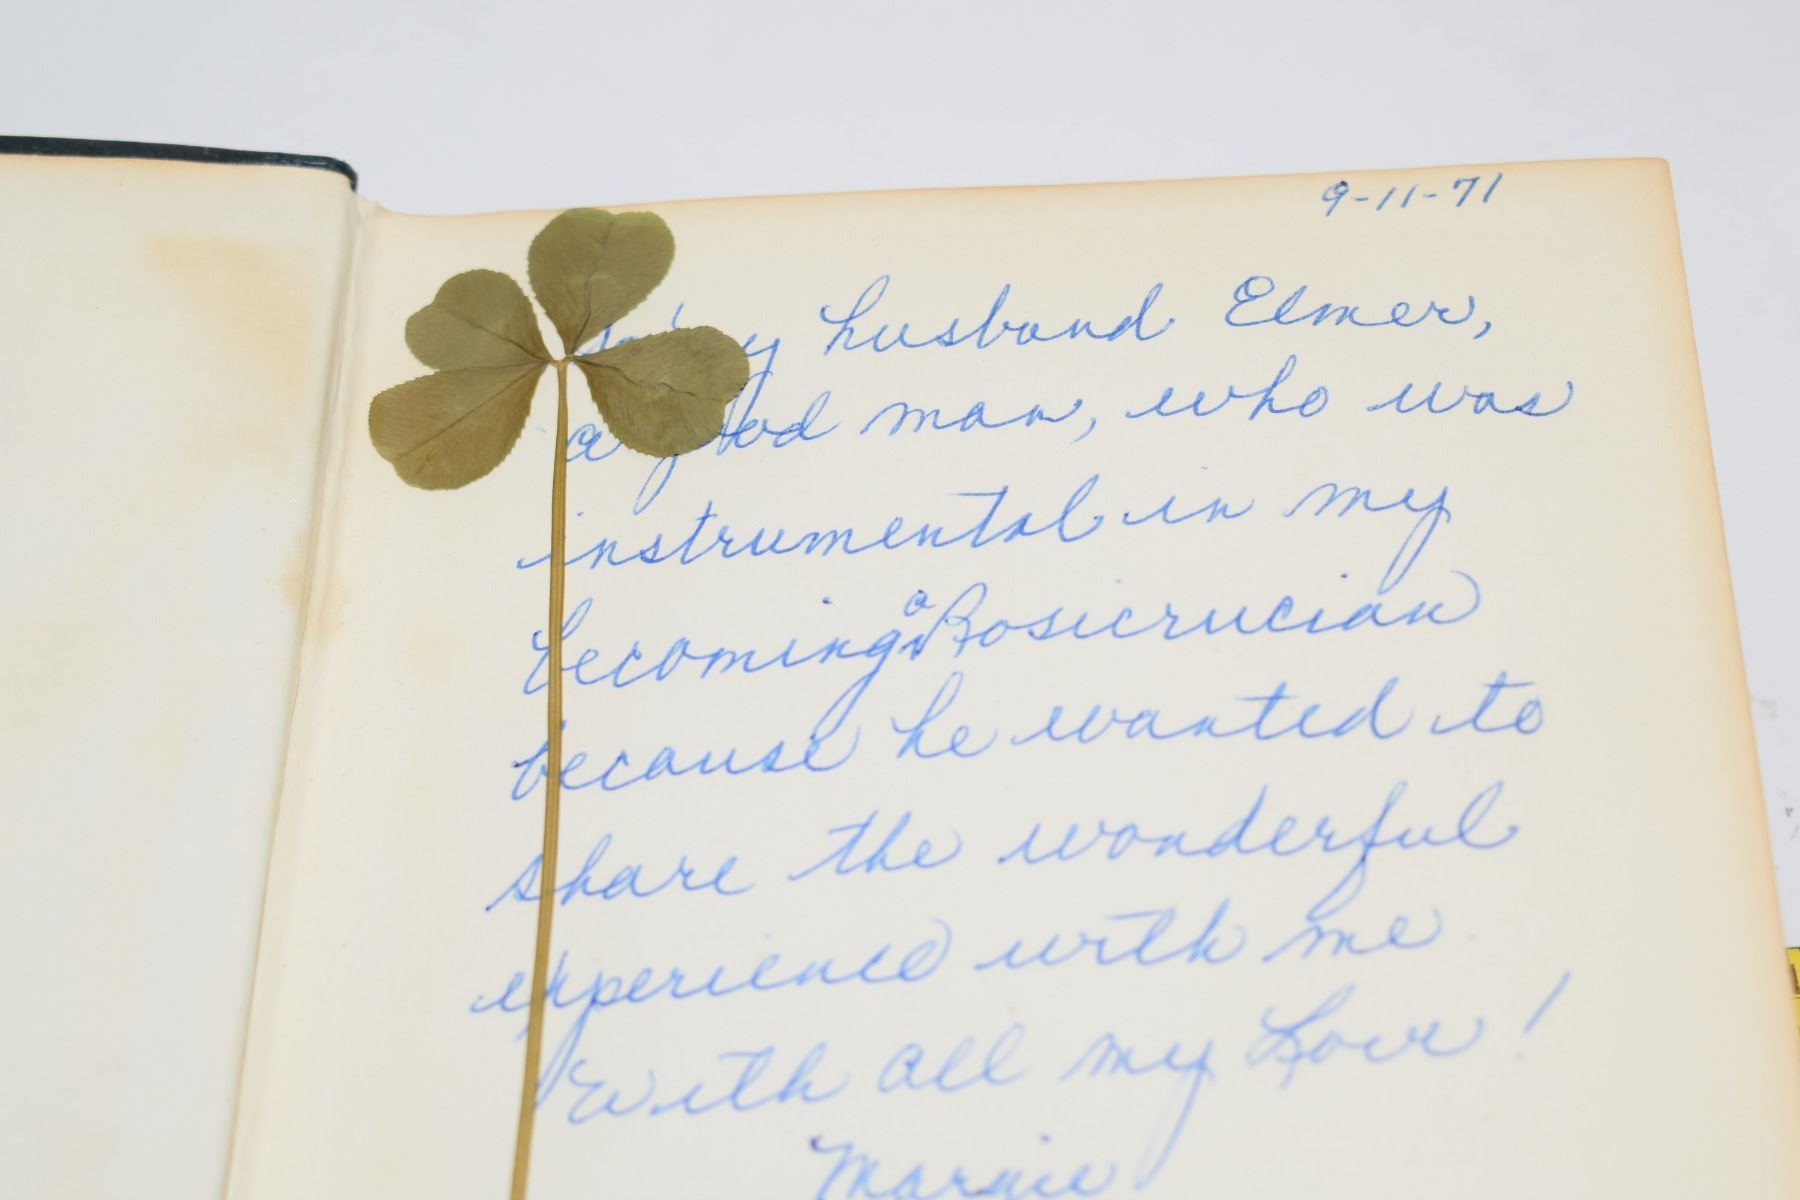 9-11-71
my husband Elmer,
a good man, who was
instrumental in my
becoming a Rosicrucian
because he wanted to
share the wonderful
experience with me
With all my Love!
Margie